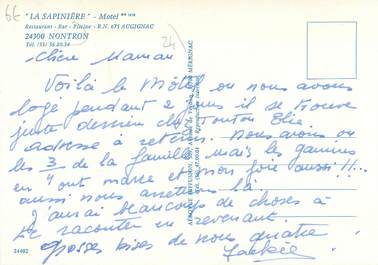 66
"LA SAPINIÈRE" - Motel
Restaurant - Bar - Piscine - R.N. 675 AUGIGNAC
24300 NONTRON
Tél. (53) 56.80.34
24
chère Maman
Voilà le Môtel ou nous avons
logé pendant 2 jours il se trouve
juste derrière chez Tonton Elie
adresse à retenir. Nous avons vu
les 3 de la famille mais les gamins
en ont marre et mon foie aussi !!...
aussi nous arrêtons là
J'aurai beaucoups de choses à
te raconter en revenant.
grosses bises de nous quatre
24402